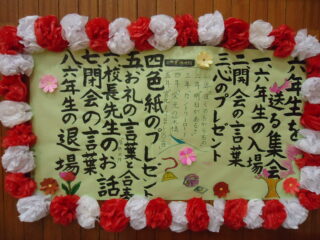 六年生を
送る集会
一六年生の入場
二開会の言葉
三心のプレゼント
四色紙のプレゼント
五お礼の言葉と合奏
六校長先生のお話
七閉会の言葉
八六年生の退場